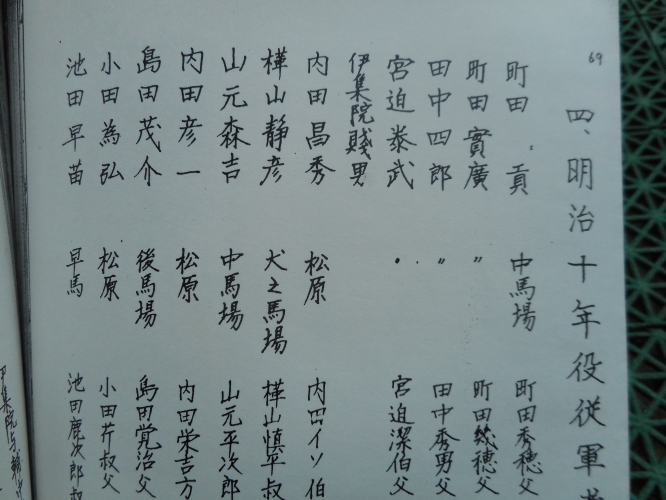 69
四、明治十年役従軍
町田 貢 中馬場 町田秀穂父
町田實廣 〃 町田幾穂父
田中四郎 〃 田中秀男父
宮迫泰武 〃 宮迫潔伯父
伊集院賤男
内田昌秀 松原 内田イソ伯
樺山静彦 犬之馬場 樺山慎平叔
山元森吉 中馬場 山元平次郎
内田彦一 松原 内田栄吉方
島田茂介 後馬場 島田覚治父
小田為弘 松原 小田芹叔父
池田早苗 早馬 池田鹿次郎叔
伊集院与